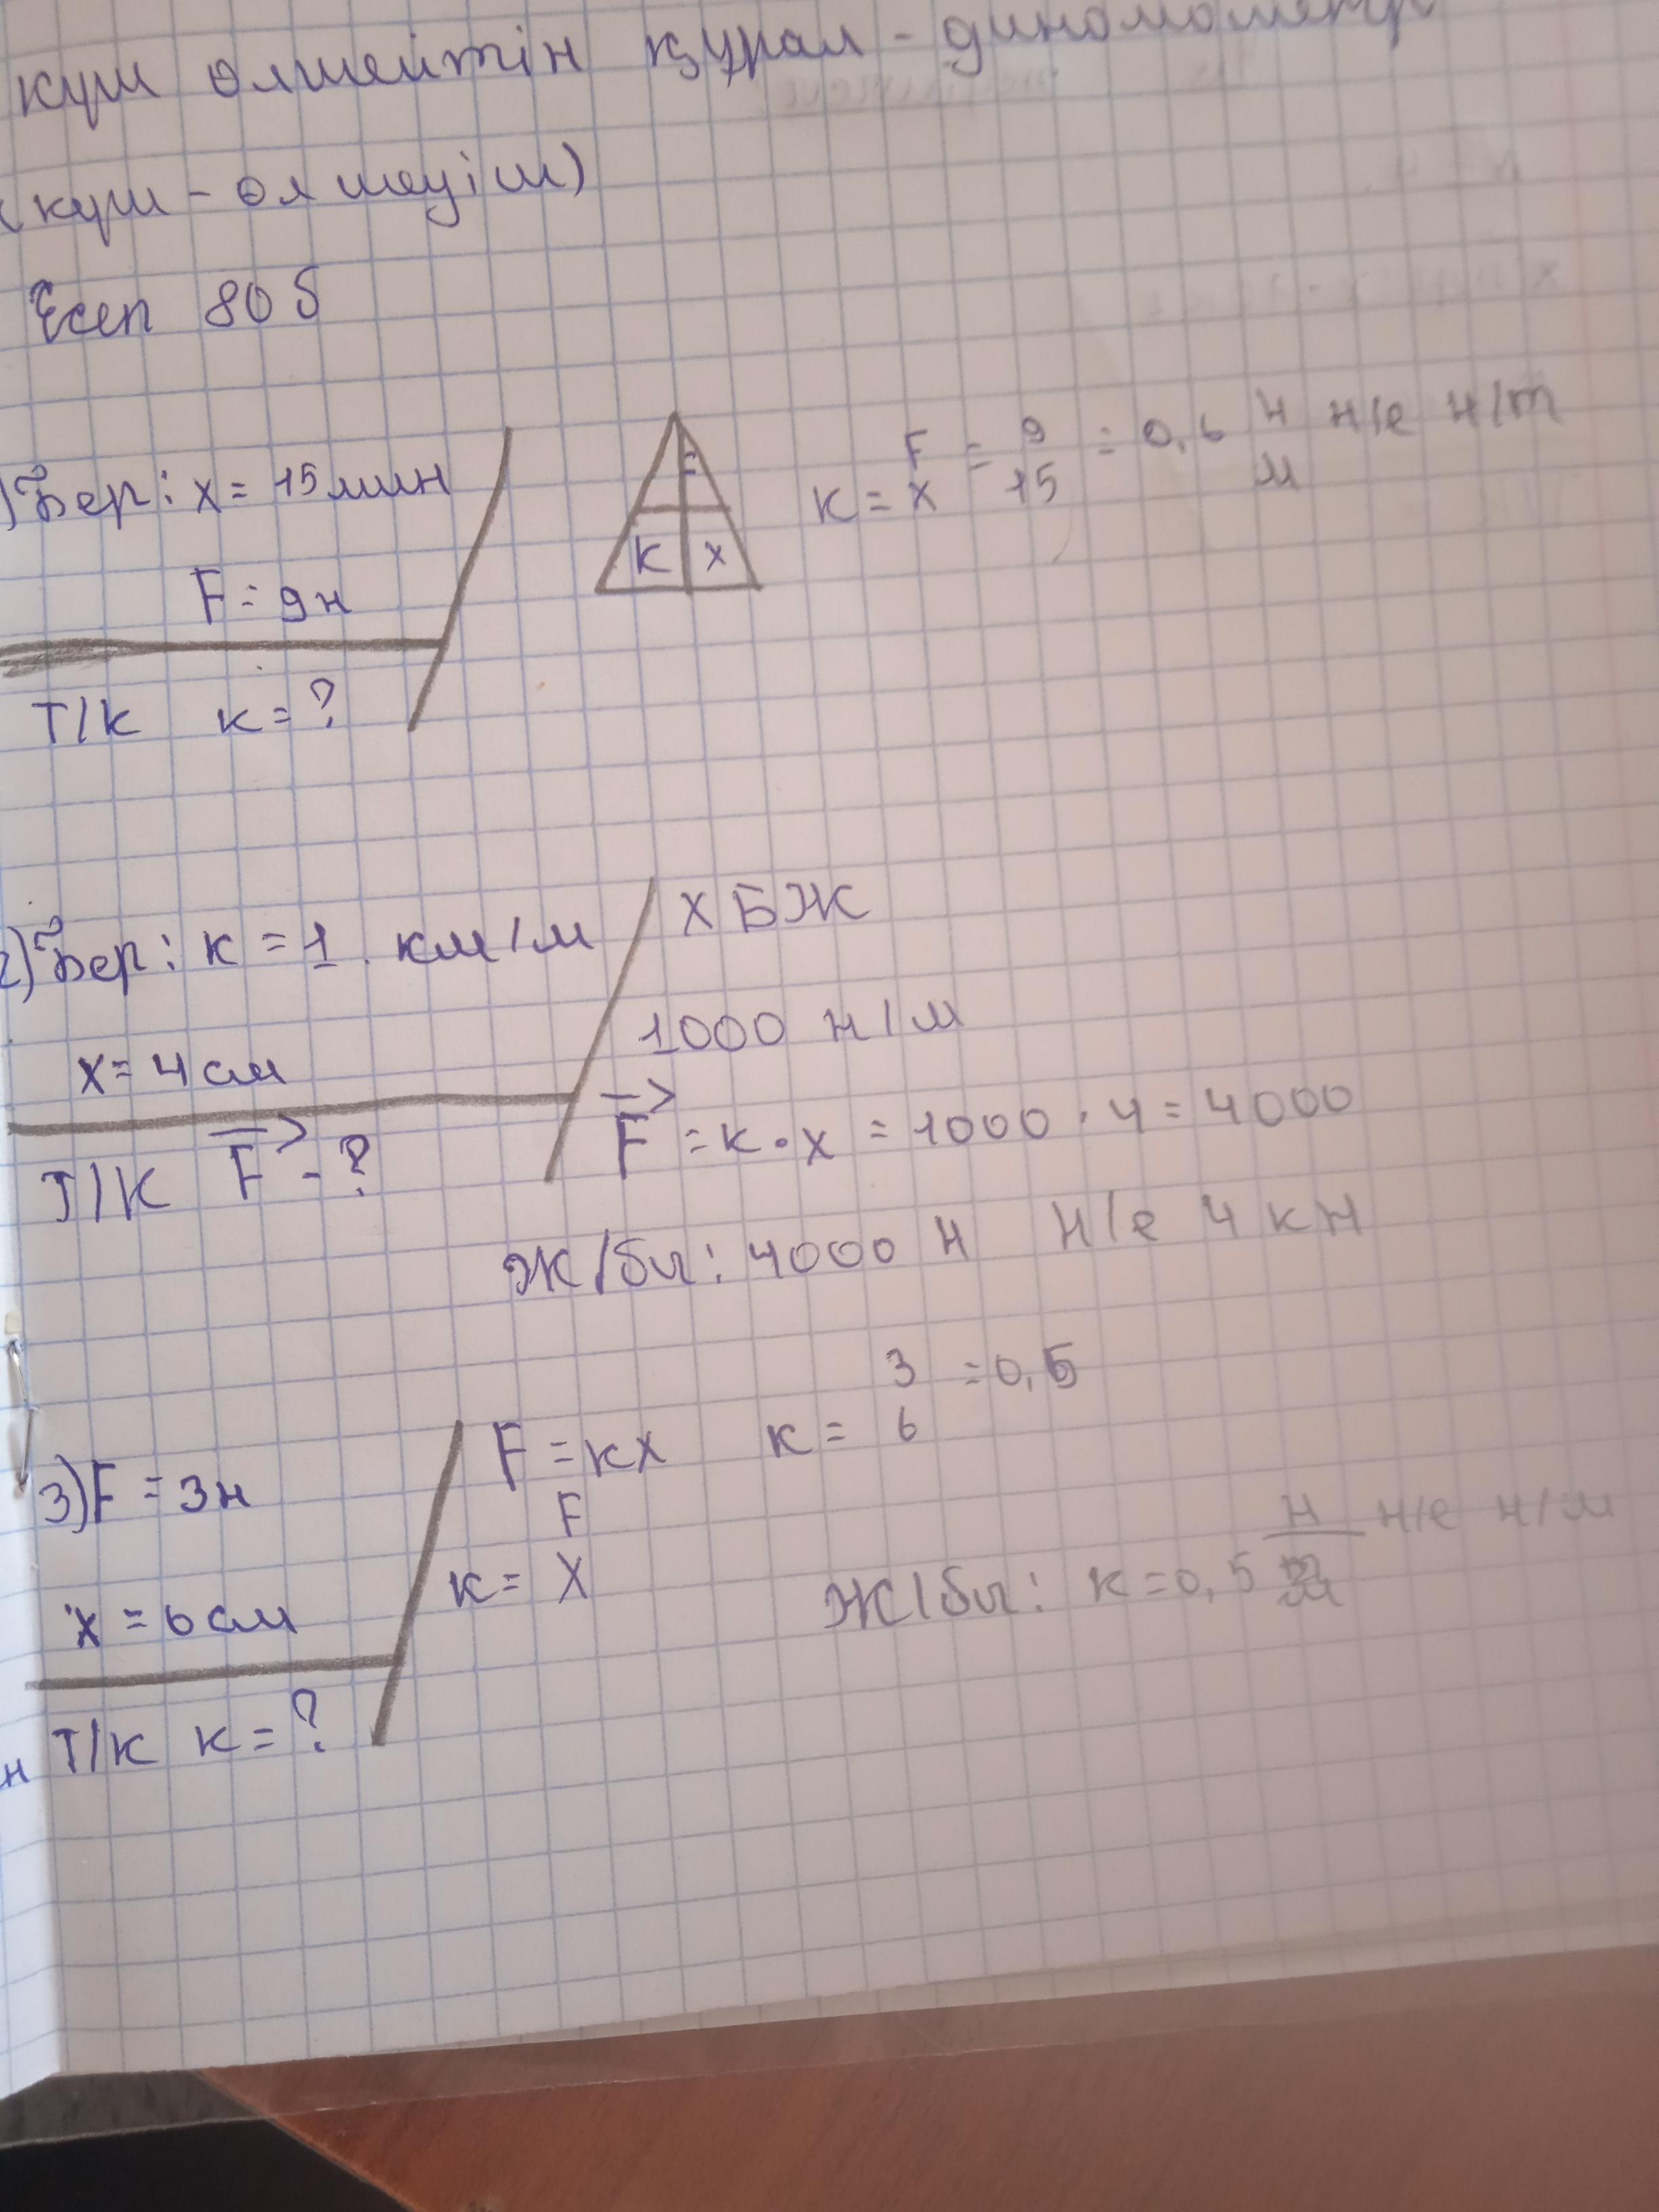 күш өлшейтін құрал - диномометр
(күш - өлшеуіш)
Есеп 80 б
1) Бер: x = 15 мин
F = 9н
Т/К к = ?
F
К х
к = F/x = 9/15 = 0,6 Н/м н/е н/m
2) Бер: к = 1 . км/м
х = 4 см
Т/К F - ?
ХБЖ
1000 н/м
F = к · х = 1000 · 4 = 4000
Ж/бы: 4000 Н н/е 4 кН
3) F = 3н
х = 6 см
Т/К к = ?
F = кх
к = F/X
к = 3/6 = 0,5
Ж/бы: к = 0,5 н/м н/е н/м
н